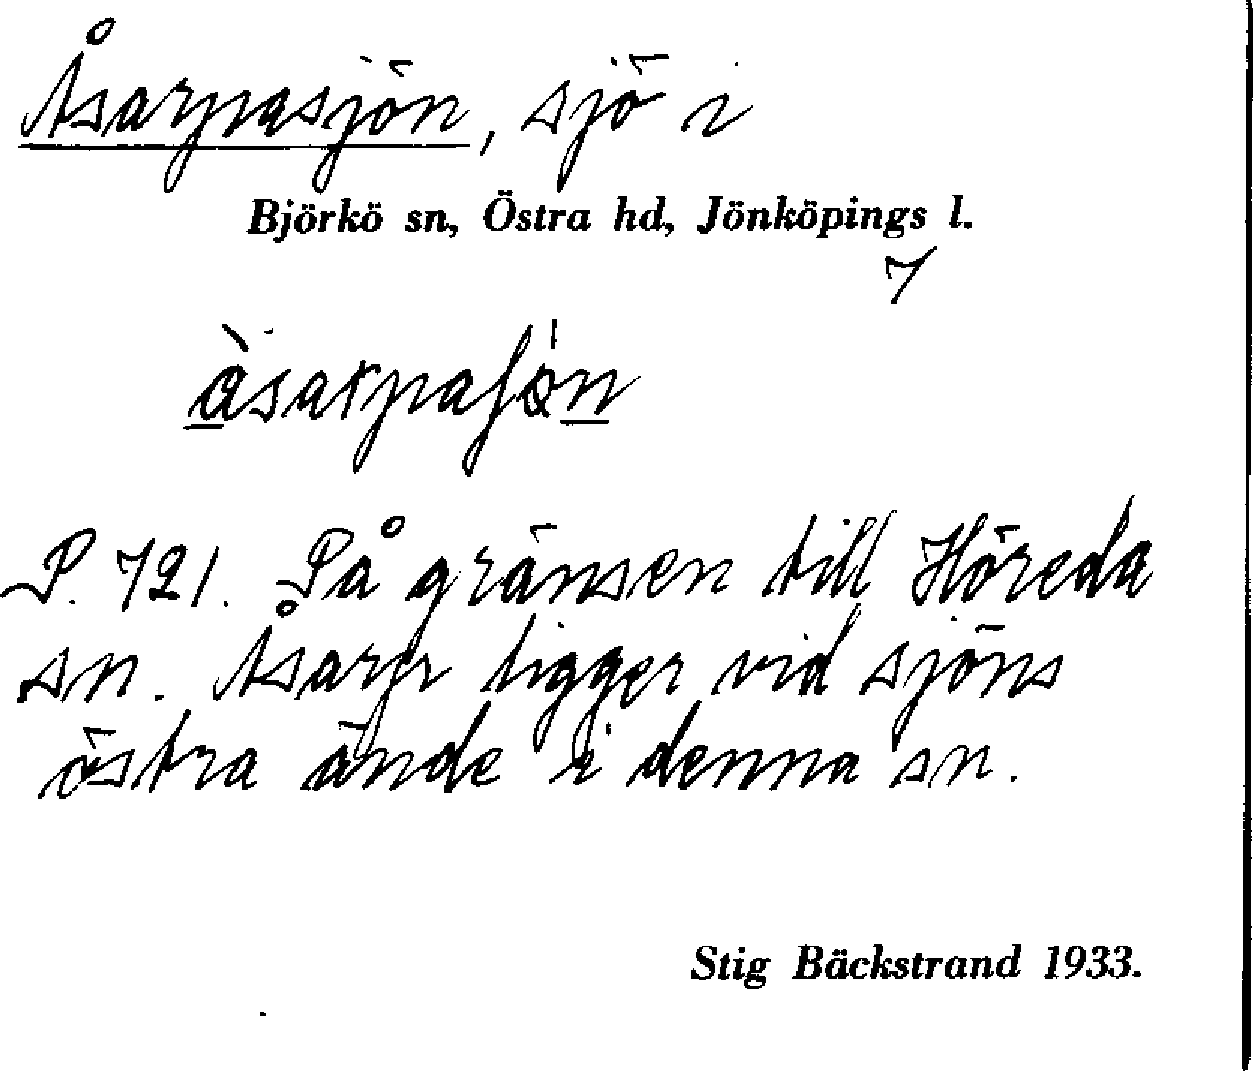 Åsarpasjön, sjö i
Björkö sn, Östra hd, Jönköpings l.
7
P. 721. På gränsen till Höreda
sn. Åsarp ligger vid sjöns
östra ände i denna sn.
Stig Bäckstrand 1933.